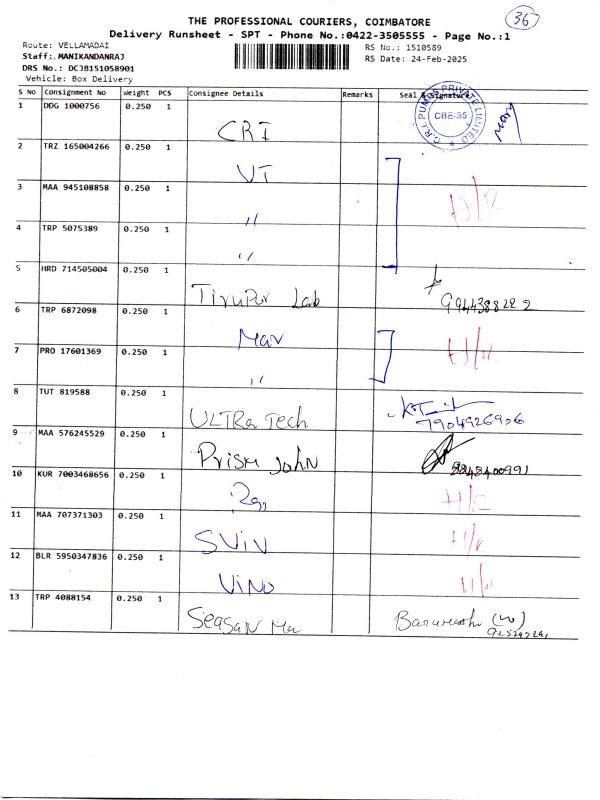 36
THE PROFESSIONAL COURIERS, COIMBATORE
Delivery Runsheet - SPT - Phone No.:0422-3505555 - Page No.:1
Route: VELLAMADAI
Staff: MANIKANDANRAJ
DRS No.: DCJB151058901
Vehicle: Box Delivery
RS No.: 1510589
RS Date: 24-Feb-2025
S No Consignment No Weight PCS Consignee Details Remarks Seal & Signature
1 DDG 1000756 0.250 1 CRI
C.R.I. PUMPS PRIVATE LIMITED
CBE-35
2 TRZ 165004266 0.250 1 VI
3 MAA 945108858 0.250 1 "
4 TRP 5075389 0.250 1 "
5 HRD 714505004 0.250 1 Tirupur Lab
6 TRP 6872098 0.250 1 Mar
7 PRO 17601369 0.250 1 "
8 TUT 819588 0.250 1 ULTRa Tech 7904926906
9 MAA 576245529 0.250 1 Prism John
10 KUR 7003468656 0.250 1
11 MAA 707371303 0.250 1 SViV
12 BLR 5950347836 0.250 1 ViNo
13 TRP 4088154 0.250 1 SeaSaN Ma